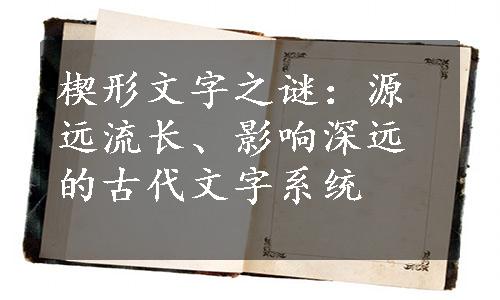 楔形文字之谜：源
远流长、影响深远
的古代文字系统